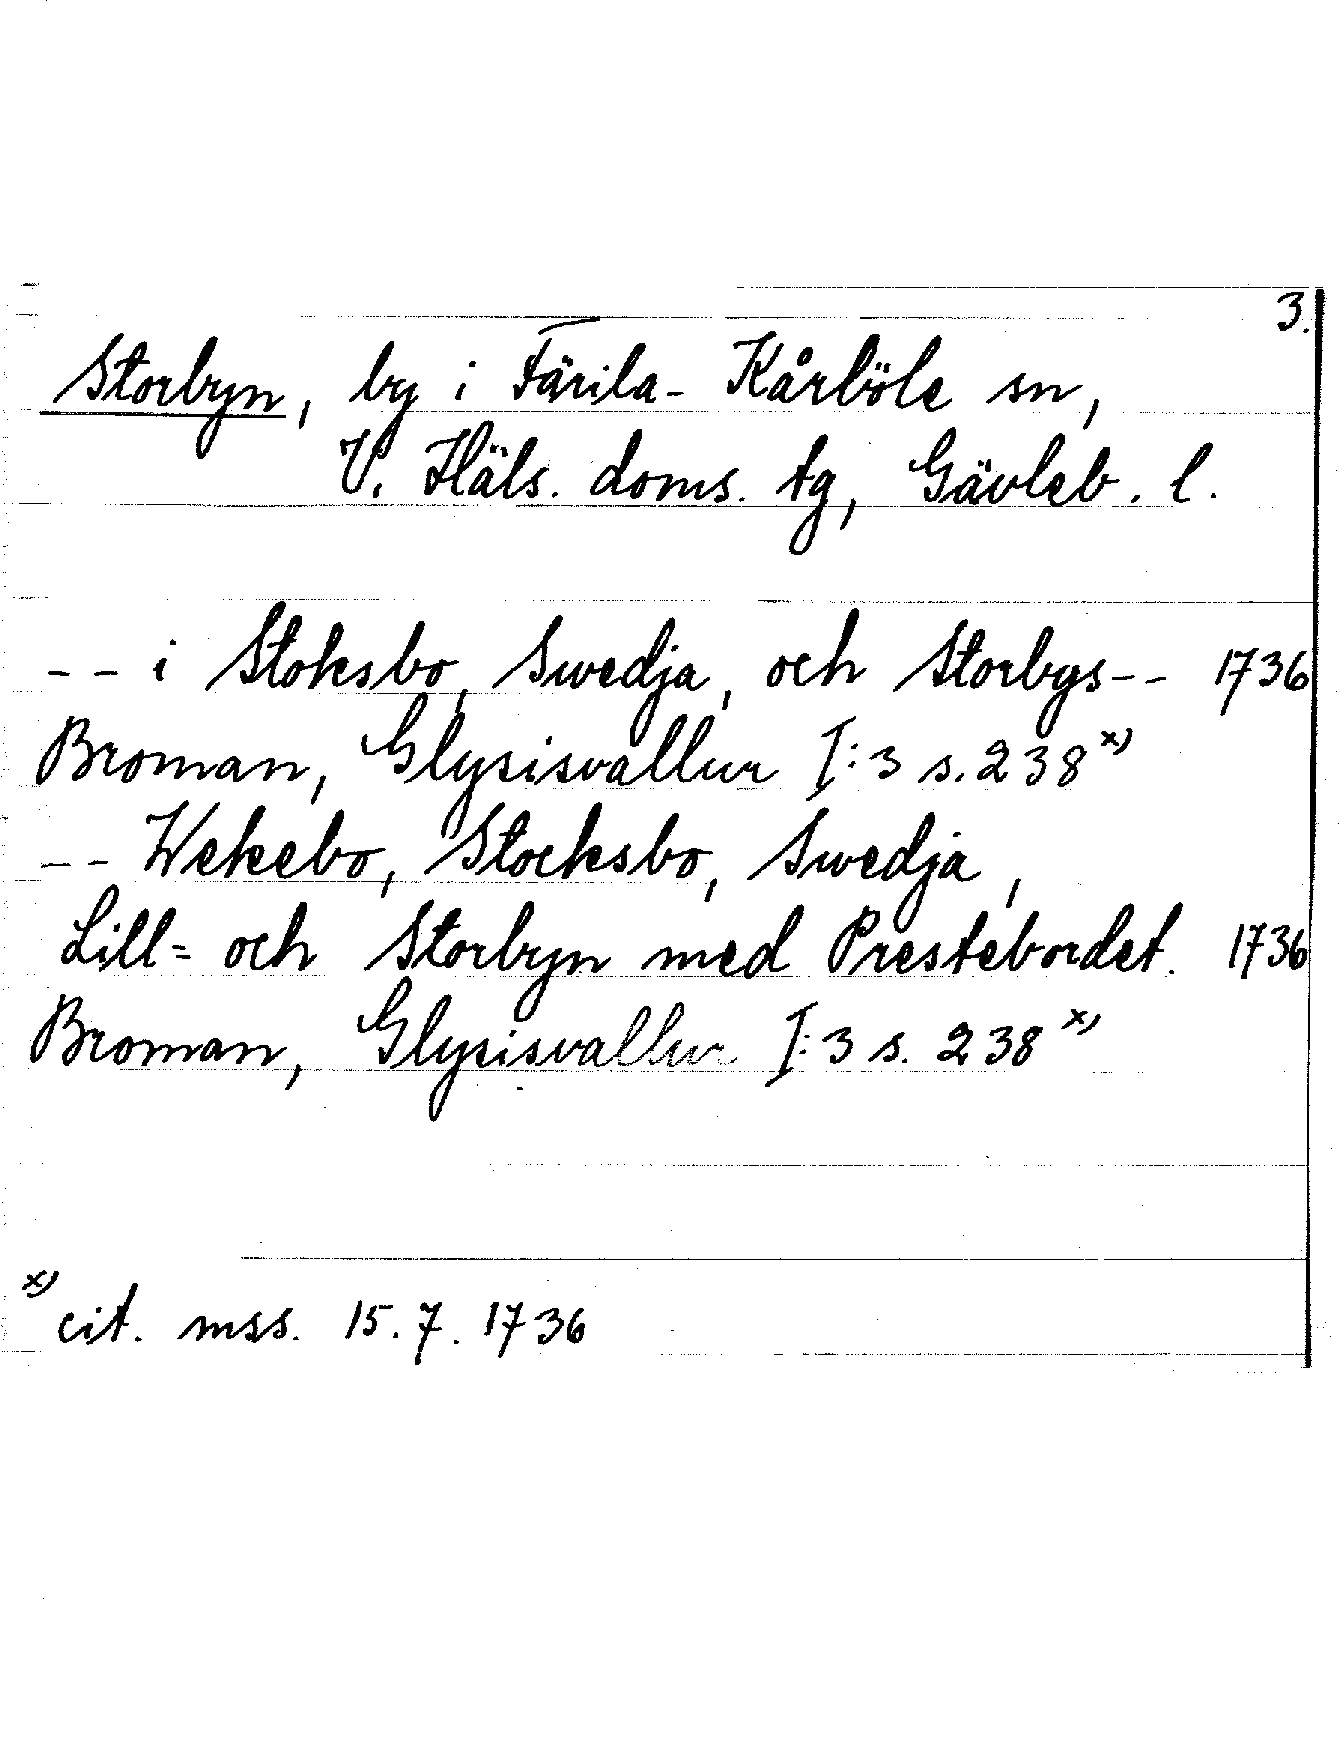 3.
Storbyn, by i Färila-Kårböle sn,
V. Häls. doms. tg, Gävleb. l.
-- i Stoksbo, Swedja, och Storbys-- 1736
Broman, Glysisvallur I:3 s. 238 x)
-- Wekebo, Stocksbo, Swedja,
Lill= och Storbyn med Prestebordet. 1736
Broman, Glysisvallur I:3 s. 238 x)
x) cit. mss. 15.7.1736